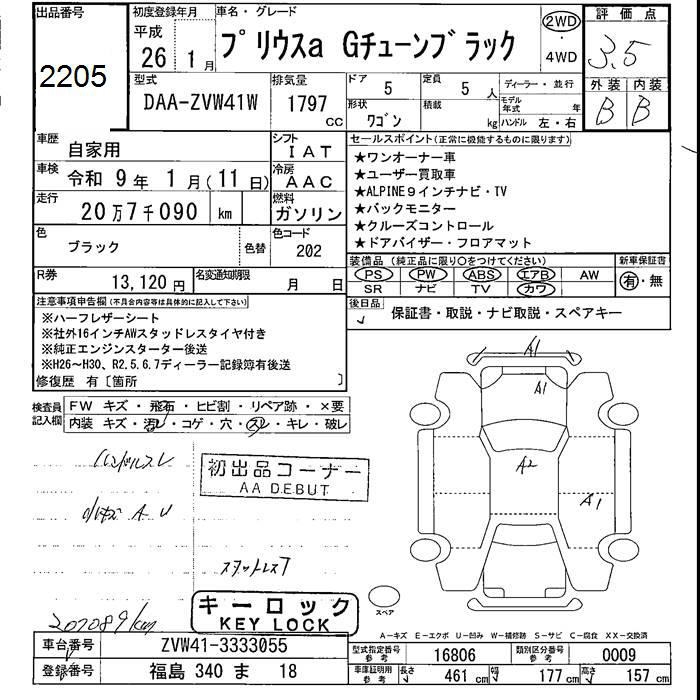 出品番号
2205
初度登録年月
平成
26年 1月
車名・グレード
プリウスa Gチューンブラック
2WD
・
4WD
評価点
3.5
外装 内装
B B
型式
DAA-ZVW41W
排気量
1797
CC
ドア
5
定員
5人
ディーラー・並行
形状
ワゴン
積載
kg
モデル年式 年
ハンドル 左・右
車歴
自家用
シフト
IAT
車検
令和 9年 1月(11日)
冷房
AAC
走行
20万7千090 km
燃料
ガソリン
色
ブラック
色替
色コード
202
R券
13,120円
名変通知期限
月 日
セールスポイント(正常に機能するものに限ります)
★ワンオーナー車
★ユーザー買取車
★ALPINE9インチナビ・TV
★バックモニター
★クルーズコントロール
★ドアバイザー・フロアマット
装備品(純正品に限り○をつけてください)
新車保証書
PS PW ABS エアB AW
有・無
SR ナビ TV カワ
後日品
保証書・取説・ナビ取説・スペアキー
注意事項申告欄(不具合内容等は具体的に記入して下さい)
※ハーフレザーシート
※社外16インチAWスタッドレスタイヤ付き
※純正エンジンスターター後送
※H26~H30、R2.5.6.7ディーラー記録簿有後送
修復歴 有〔箇所 〕
検査員記入欄
FW キズ・飛石・ヒビ割・リペア跡・×要
内装 キズ・汚レ・コゲ・穴・スレ・キレ・破レ
ハンドルスレ
小キズ A U
初出品コーナー
AA DEBUT
スタットレスT
207089km
キーロック
KEY LOCK
A1
A1
A2
A1
スペア
A-キズ E-エクボ U-凹み W-補修跡 S-サビ C-腐食 XX-交換済
車台番号
ZVW41-3333055
登録番号
福島 340 ま 18
型式指定番号
参考
16806
類別区分番号
参考
0009
車庫証明用
参考
長さ
461 cm
幅
177 cm
高さ
157 cm